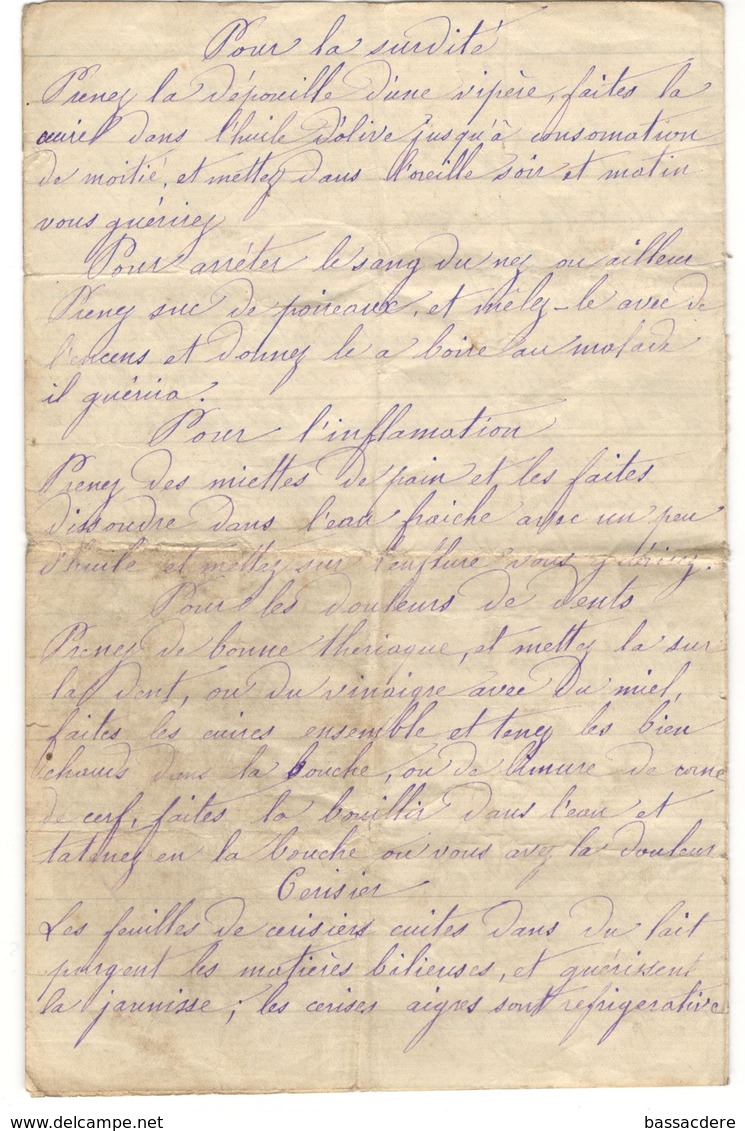 Pour la surdité
Prenez la dépoeille d'une vipère, faites la
cuirel dans l'huile d'olive jusqu'à consomation
de moitié, et mettez dans l'oreille soir et matin
vous guérirez
Pour arréter le sang du nez ou ailleur
Prenez suc de poireaux, et mêlez-le avec de
l'encens et donnez le a boire au malade
il guérira.
Pour l'inflamation
Prenez des miettes de pain et les faites
dissoudre dans l'eau fraiche avec un peu
d'huile et mettez sur l'enflure vous guérirez.
Pour les douleurs de dents
Prenez de bonne thériaque, et mettez la sur
la dent, ou du vinaigre avec Du miel,
faites les cuires ensemble et tenez les bien
chauds dans la bouche, ou de limure de corne
de cerf, faites la bouillir dans l'eau et
en la bouche ou vous avez la douleur
Cerisier
Les feuilles de cerisiers cuites dans du lait
purgent les matières bilieuses, et guérissent
la jaunisse; les cerises aigres sont réfrigerative
bassacdere